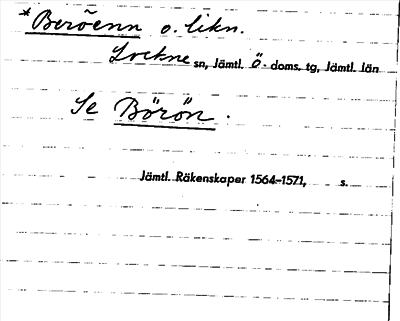 * Berõenn o. likn.
Lockne sn, Jämtl. Ö. doms. tg, Jämtl. län
Se Börön.
Jämtl. Räkenskaper 1564-1571, s.